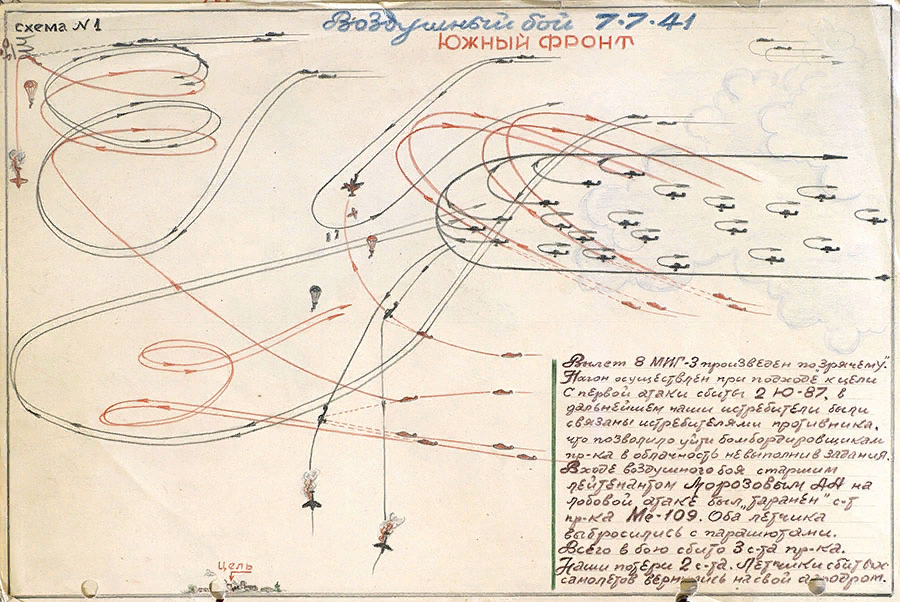 схема N1
Воздушный бой 7.7.41
Южный фронт
Вылет 8 МИГ-3 произведен по „зрячему".
Нагон осуществлен при подходе к цели
С первой атаки сбиты 2 Ю-87, в
дальнейшем наши истребители были
связаны истребителями противника,
что позволило уйти бомбордировщикам
пр-ка в облачность не выполнив задания.
В ходе воздушного боя старшим
лейтенантом Морозовым АА на
лобовой атаке был „таранен" с-т
пр-ка Ме-109. Оба летчика
выбросились с парашютами.
Всего в бою сбито 3 с-та пр-ка.
Наши потери 2 с-та. Летчики сбитых
самолетов вернулись на свой аэродром.
Цель